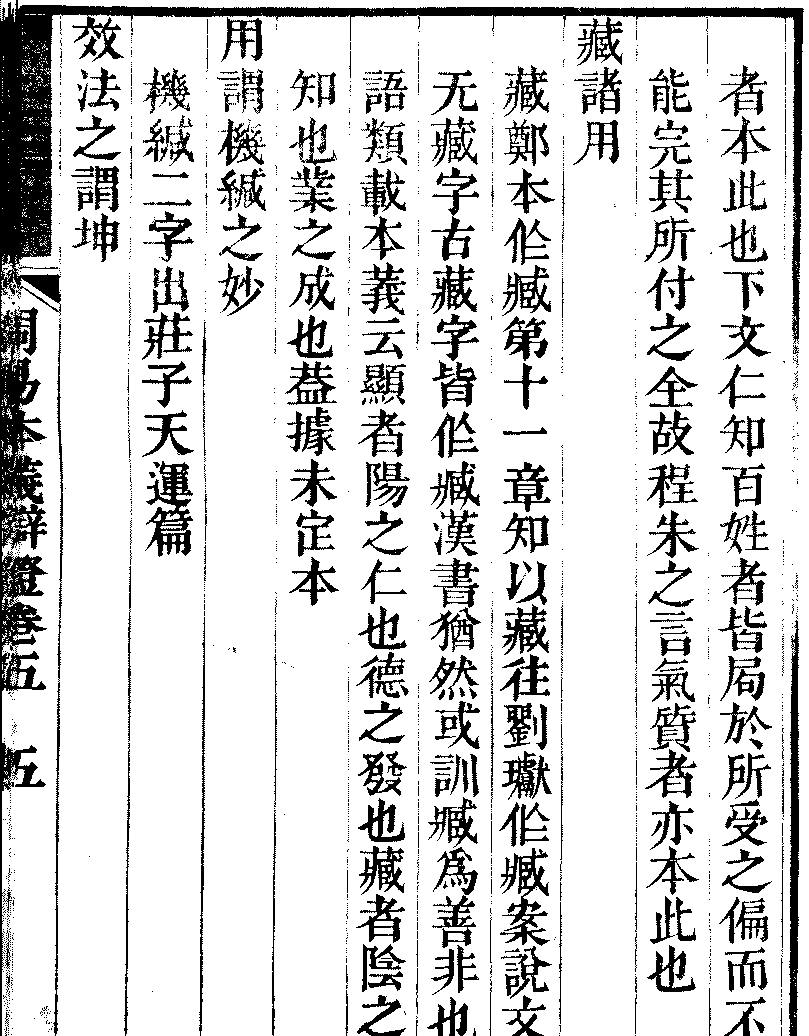 者本此也下文仁知百姓者皆局於所受之偏而不
能完其所付之全故程朱之言氣質者亦本此也
藏諸用
藏鄭本作臧第十一章知以藏往劉瓛作臧案說文
无藏字古藏字皆作臧漢書猶然或訓臧爲善非也
語類載本義云顯者陽之仁也德之發也藏者陰之
知也業之成也葢據未定本
用謂機緘之妙
機緘二字出莊子天運篇
效法之謂坤
周易本義辯證卷五 五